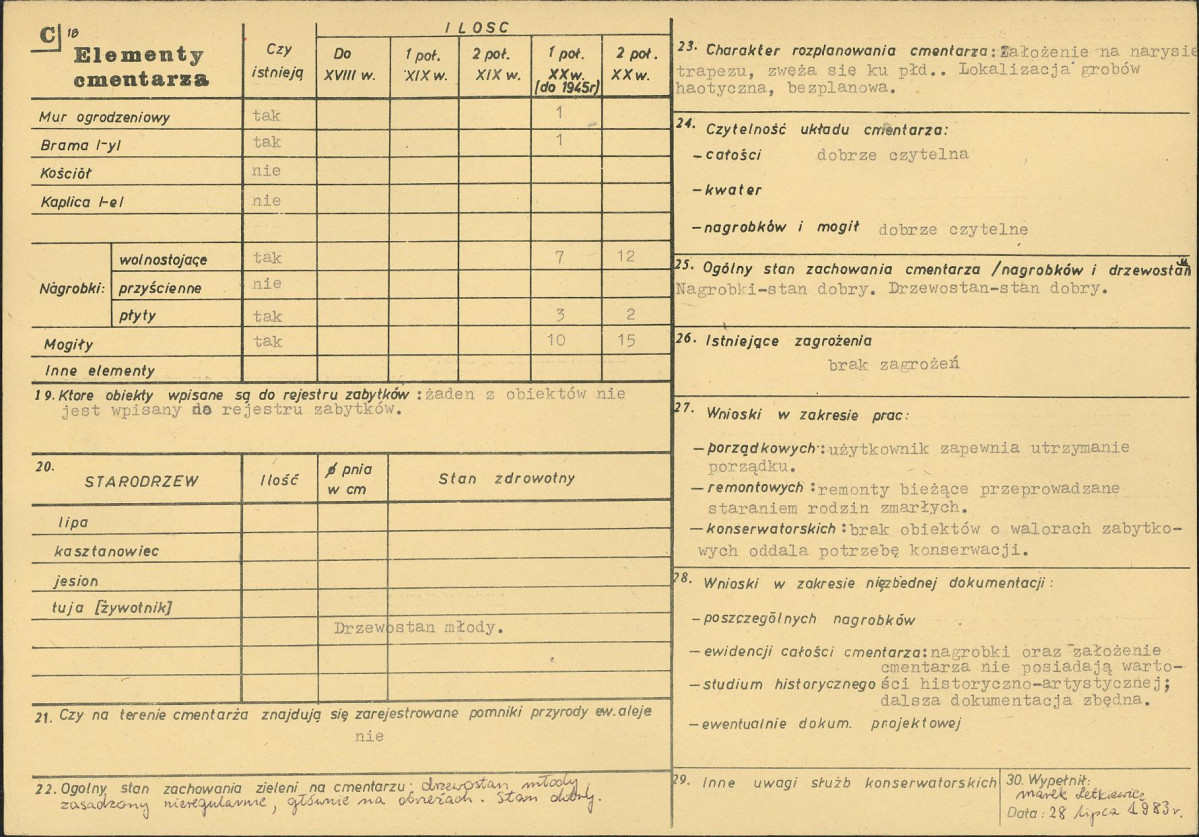 C 18
Elementy
cmentarza
Czy
istnieją
ILOSC
Do
XVIII w.
1 poł.
XIX w.
2 poł.
XIX w.
1 poł.
XX w.
(do 1945r)
2 poł.
XX w.
Mur ogrodzeniowy tak 1
Brama l-yl tak 1
Kościół nie
Kaplica l-el nie
Nagrobki:
wolnostojące tak 7 12
przyścienne nie
płyty tak 3 2
Mogiły tak 10 15
Inne elementy
19. Ktore obiekty wpisane są do rejestru zabytków : żaden z obiektów nie
jest wpisany do rejestru zabytków.
20.
STARODRZEW Ilość ø pnia
w cm
Stan zdrowotny
lipa
kasztanowiec
jesion
tuja [żywotnik]
Drzewostan młody.
21. Czy na terenie cmentarza znajdują się zarejestrowane pomniki przyrody ew. aleje
nie
22. Ogolny stan zachowania zieleni na cmentarzu: drzewostan młody,
zasadzony nieregularnie, głównie na obrzeżach. Stan dobry.
23. Charakter rozplanowania cmentarza: Założenie na narysie
trapezu, zwęża sie ku płd.. Lokalizacja grobów
haotyczna, bezplanowa.
24. Czytelność układu cmentarza:
– całości dobrze czytelna
– kwater
– nagrobków i mogił dobrze czytelne
25. Ogólny stan zachowania cmentarza /nagrobków i drzewostan
Nagrobki-stan dobry. Drzewostan-stan dobry.
26. Istniejące zagrożenia
brak zagrożeń
27. Wnioski w zakresie prac:
– porządkowych : użytkownik zapewnia utrzymanie
porządku.
– remontowych : remonty bieżące przeprowadzane
staraniem rodzin zmarłych.
– konserwatorskich : brak obiektów o walorach zabytko-
wych oddala potrzebę konserwacji.
28. Wnioski w zakresie niezbędnej dokumentacji :
– poszczególnych nagrobków
– ewidencji całości cmentarza: nagrobki oraz założenie
cmentarza nie posiadają warto-
– studium historycznego ści historyczno-artystycznej;
dalsza dokumentacja zbędna.
– ewentualnie dokum. projektowej
29. Inne uwagi służb konserwatorskich
30. Wypełnił:
Marek Letkiewicz
Data: 28 lipca 1983 r.